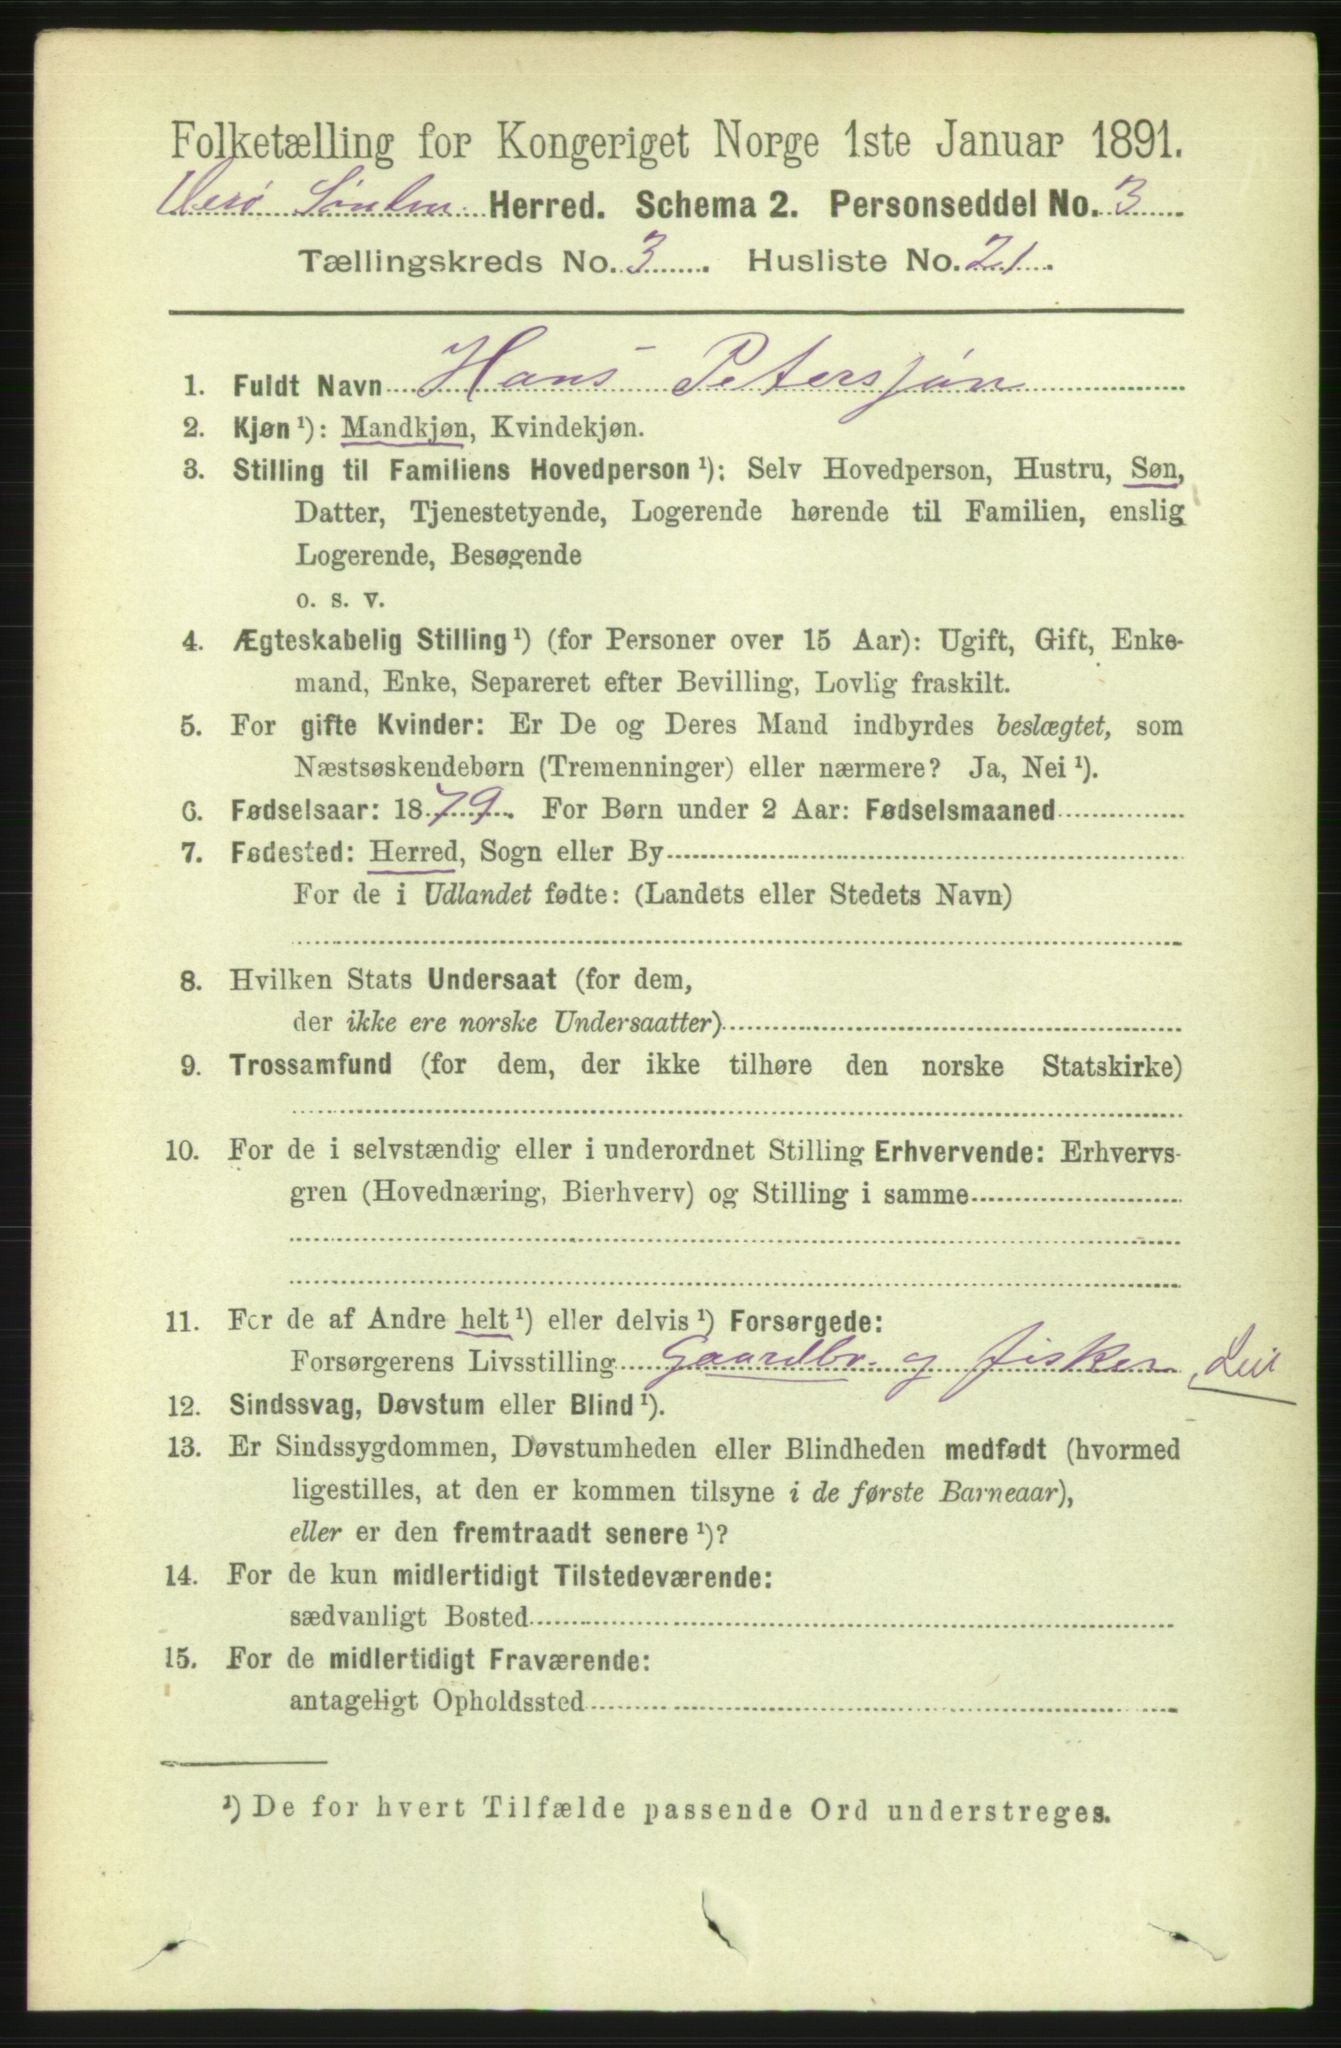 Folketælling for Kongeriget Norge 1ste Januar 1891.
Herred. Schema 2. Personseddel No. 3
Tællingskreds No. 3. Husliste No. 21.
1. Fuldt Navn Hans Petersjøn
2. Kjøn ¹): Mandkjøn, Kvindekjøn.
3. Stilling til Familiens Hovedperson ¹): Selv Hovedperson, Hustru, Søn,
Datter, Tjenestetyende, Logerende hørende til Familien, enslig
Logerende, Besøgende
o. s. v.
4. Ægteskabelig Stilling ¹) (for Personer over 15 Aar): Ugift, Gift, Enke-
mand, Enke, Separeret efter Bevilling, Lovlig fraskilt.
5. For gifte Kvinder: Er De og Deres Mand indbyrdes beslægtet, som
Næstsøskendebørn (Tremenninger) eller nærmere? Ja, Nei ¹).
6. Fødselsaar: 1879. For Børn under 2 Aar: Fødselsmaaned
7. Fødested: Herred, Sogn eller By
For de i Udlandet fødte: (Landets eller Stedets Navn)
8. Hvilken Stats Undersaat (for dem,
der ikke ere norske Undersaatter)
9. Trossamfund (for dem, der ikke tilhøre den norske Statskirke)
10. For de i selvstændig eller i underordnet Stilling Erhvervende: Erhvervs-
gren (Hovednæring, Bierhverv) og Stilling i samme
11. For de af Andre helt ¹) eller delvis ¹) Forsørgede:
Forsørgerens Livsstilling Gaardbr. og fisker,
12. Sindssvag, Døvstum eller Blind ¹).
13. Er Sindssygdommen, Døvstumheden eller Blindheden medfødt (hvormed
ligestilles, at den er kommen tilsyne i de første Barneaar),
eller er den fremtraadt senere ¹)?
14. For de kun midlertidigt Tilstedeværende:
sædvanligt Bosted
15. For de midlertidigt Fraværende:
antageligt Opholdssted
¹) De for hvert Tilfælde passende Ord understreges.